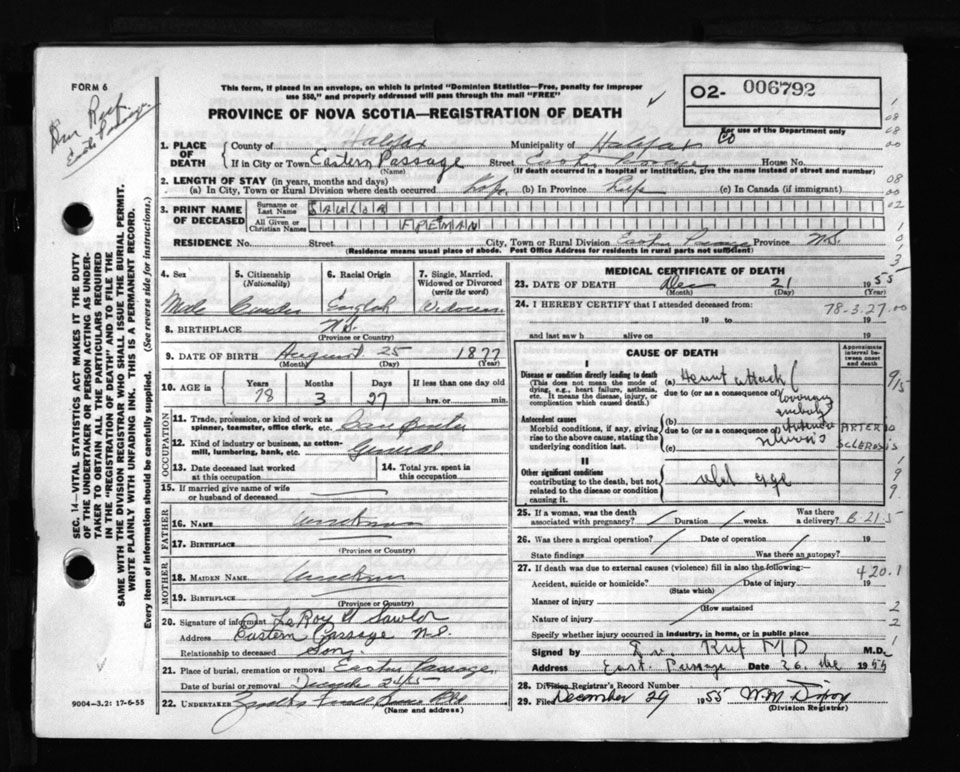 FORM 6
This form, if placed in an envelope, on which is printed "Dominion Statistics—Free, penalty for improper
use $50," and properly addressed will pass through the mail "FREE"
PROVINCE OF NOVA SCOTIA—REGISTRATION OF DEATH
O2- 006792
For use of the Department only
1. PLACE OF DEATH
County of Halifax Municipality of Halifax Co
If in City or Town Eastern Passage Street Eastern Passage House No.
(Name) (If death occurred in a hospital or institution, give the name instead of street and number)
2. LENGTH OF STAY (in years, months and days)
(a) In City, Town or Rural Division where death occurred (b) In Province (c) In Canada (if immigrant)
3. PRINT NAME OF DECEASED
Surname or Last Name SAWLOR
All Given or Christian Names FREMAN
RESIDENCE No. Street City, Town or Rural Division Eastern Passage Province N.S.
(Residence means usual place of abode. Post Office Address for residents in rural parts not sufficient)
SEC. 14—VITAL STATISTICS ACT MAKES IT THE DUTY
OF THE UNDERTAKER OR PERSON ACTING AS UNDER-
TAKER TO OBTAIN ALL THE PARTICULARS REQUIRED
IN THE "REGISTRATION OF DEATH" AND TO FILE THE
SAME WITH THE DIVISION REGISTRAR WHO SHALL ISSUE THE BURIAL PERMIT.
WRITE PLAINLY WITH UNFADING INK. THIS IS A PERMANENT RECORD.
Every item of information should be carefully supplied. (See reverse side for instructions.)
4. Sex Male
5. Citizenship (Nationality)
6. Racial Origin English
7. Single, Married, Widowed or Divorced (write the word) Widower
8. BIRTHPLACE N.S.
(Province or Country)
9. DATE OF BIRTH August 25 1877
(Month) (Day) (Year)
10. AGE in Years Months Days If less than one day old
78 3 27 hrs. or min.
OCCUPATION
11. Trade, profession, or kind of work as
spinner, teamster, office clerk, etc.
12. Kind of industry or business, as cotten-
mill, lumbering, bank, etc. General
13. Date deceased last worked
at this occupation
14. Total yrs. spent in
this occupation
15. If married give name of wife
or husband of deceased
FATHER
16. NAME Unknown
17. BIRTHPLACE
(Province or Country)
MOTHER
18. MAIDEN NAME Unknown
19. BIRTHPLACE
(Province or Country)
20. Signature of informant LeRoy H Sawlor
Address Eastern Passage N.S.
Relationship to deceased Son.
21. Place of burial, cremation or removal Eastern Passage
Date of burial or removal December 24/55
22. UNDERTAKER
(Name and address)
9004-3.2: 17-6-55
MEDICAL CERTIFICATE OF DEATH
23. DATE OF DEATH Dec 21 1955
(Month) (Day) (Year)
24. I HEREBY CERTIFY that I attended deceased from: 78-3-27.00
19 to 19
and last saw h alive on 19
CAUSE OF DEATH
Approximate interval between onset and death
I
Disease or condition directly leading to death
(This does not mean the mode of
dying, e.g., heart failure, asthenia,
etc. It means the disease, injury, or
complication which caused death.)
(a) Heart attack (
due to (or as a consequence of) coronary
Antecedent causes
Morbid conditions, if any, giving
rise to the above cause, stating the
underlying condition last.
(b)
due to (or as a consequence of)
(c)
ARTERIO
SCLEROSIS
II
Other significant conditions
contributing to the death, but not
related to the disease or condition
causing it.
old age
25. If a woman, was the death
associated with pregnancy? Duration weeks. Was there
a delivery? 6-21-5
26. Was there a surgical operation? Date of operation 19
State findings Was there an autopsy?
27. If death was due to external causes (violence) fill in also the following:— 420.1
Accident, suicide or homicide? Date of injury 19
(State which)
Manner of injury
(How sustained
Nature of injury
Specify whether injury occurred in industry, in home, or in public place
Signed by M D M.D.
Address East. Passage Date 26. Dec 1955
28. Division Registrar's Record Number
29. Filed December 29 1955
(Division Registrar)